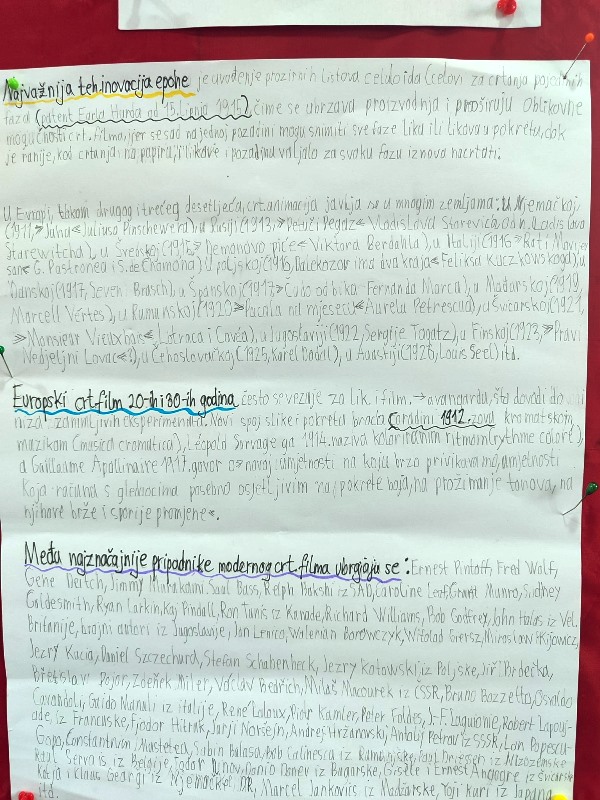 Najvažnija teh.inovacija epohe je uvođenje prozirnih listova celuloida (celovi za crtanja pojedinih
faza (patent Earla Hurda od 15. lipnja 1915), čime se ubrzava proizvodnja i proširuju Oblikovne
mogućnosti crt. filma, jer se sad na jednoj pozadini mogu snimiti sve faze lika ili likova u pokretu, dok
je ranije, kod crtanja na papiru, i likove i pozadinu valjalo za svaku fazu iznova nacrtati.
U Evropi, tokom drugog i trećeg desetljeća, crt.animacija javlja se u mnogim zemljama: u Njemačkoj
(1911, »Juha« Juliusa Pinschewera), u Rusiji (1913, »Petuči Pegaz« Vladislava Starevića, dan. Ladislava
Starewitcha), u Švedskoj (1915, »Demonovo piće« Viktora Bergdahla), u Italiji (1916 »Rat i
san« G. Pastronea i S. de Chamona) U poljskoj (1916, Dalekozor ima dva kraja« Feliksa Kuczkowskoga), u
Danskoj (1917, Seven Brasch), u Španskoj (1917, »Čudo od bika Fernanda Marca), u Mađarskoj (1919,
Marcell Vértes), u Rumunskoj (1920 »Pacala na mjesecu« Aurela Petrescua), u Švicarskoj (1921,
»Monsieur Vieuxbois« Lotrnca i Cavéa), u Jugoslaviji (1922, Sergije Tagatz), u Finskoj (1923, »Pravi
Nedjeljni Lovac«?), u Čehoslovačkoj (1925, Karel Dodal), u Austriji (1926, Louis Seel) itd.
Europski crt.film 20-ih i 30-ih godina često se vezuje za lik. i film. → avangardu, što dovodi do
niza zanimljivih eksperimenata. Novi spoj slike i pokreta braća Coradini 1912. zovu kromatskom
muzikom (musica cromatica), Léopold Survage ga 1914. naziva koloriranim ritmom (rythme coloré),
a Guillaume Apollinaire 1917. govori o »novoj umjetnosti na koju brzo privikavamo, umjetnosti
koja računa s gledaocima posebno osjetljivim na pokrete boja, na prožimanje tonova, na
njihove brže i sporije promjene«.
Među najznačajnije pripadnike modernog crt. filma ubrajaju se: Ernest Pintoff, Fred Wolf,
Gene Deitch, Jimmy Murakami, Saul Bass, Ralph Bakshi iz SAD, Caroline Leaf, Grant Munro, Sidney
Goldesmith, Ryan Larkin, Kaj Pindall, Ron Tunis iz Kanade, Richard Williams, Bob Godfrey, John Halas iz Vel.
Britanije, brojni autori iz Jugoslavije, Jan Lenica, Walerian Borowczyk, Witold Giersz, Mirosław Kijowicz,
Jezry Kucia, Daniel Szczechura, Stefan Schabenbeck, Jezry Kotowski iz Poljske, Jiří Brdečka,
Břetislav Pojar, Zdeněk Miler, Václav Bedřich, Miloš Macourek iz ČSSR, Bruno Bozzetto, Osvaldo
Cavandoli, Guido Manuli iz Italije, René Laloux, Piotr Kamler, Peter Foldes, J-F. Laguionie, Robert Lapouj-
ade, iz Francuske, Fjodor Hitruk, Jurji Noršejn, Andrej Hržanovski, Anatolij Petrov iz SSSR, Ion Popescu-
Gopo, Constantin Musteţea, Sabin Bălaşa, Bob Calinescu iz Rumunjske, Paul Driessen iz Nizozemske
Raul Servais iz Belgije, Todor Dinov, Donjo Donev iz Bugarske, Gisèle i Ernest Ansorge iz Švicarske
Katja i Klaus Georgi iz Njemačke DR, Marcel Jankovics iz Mađarske, Yoji Kuri iz Japana
itd.